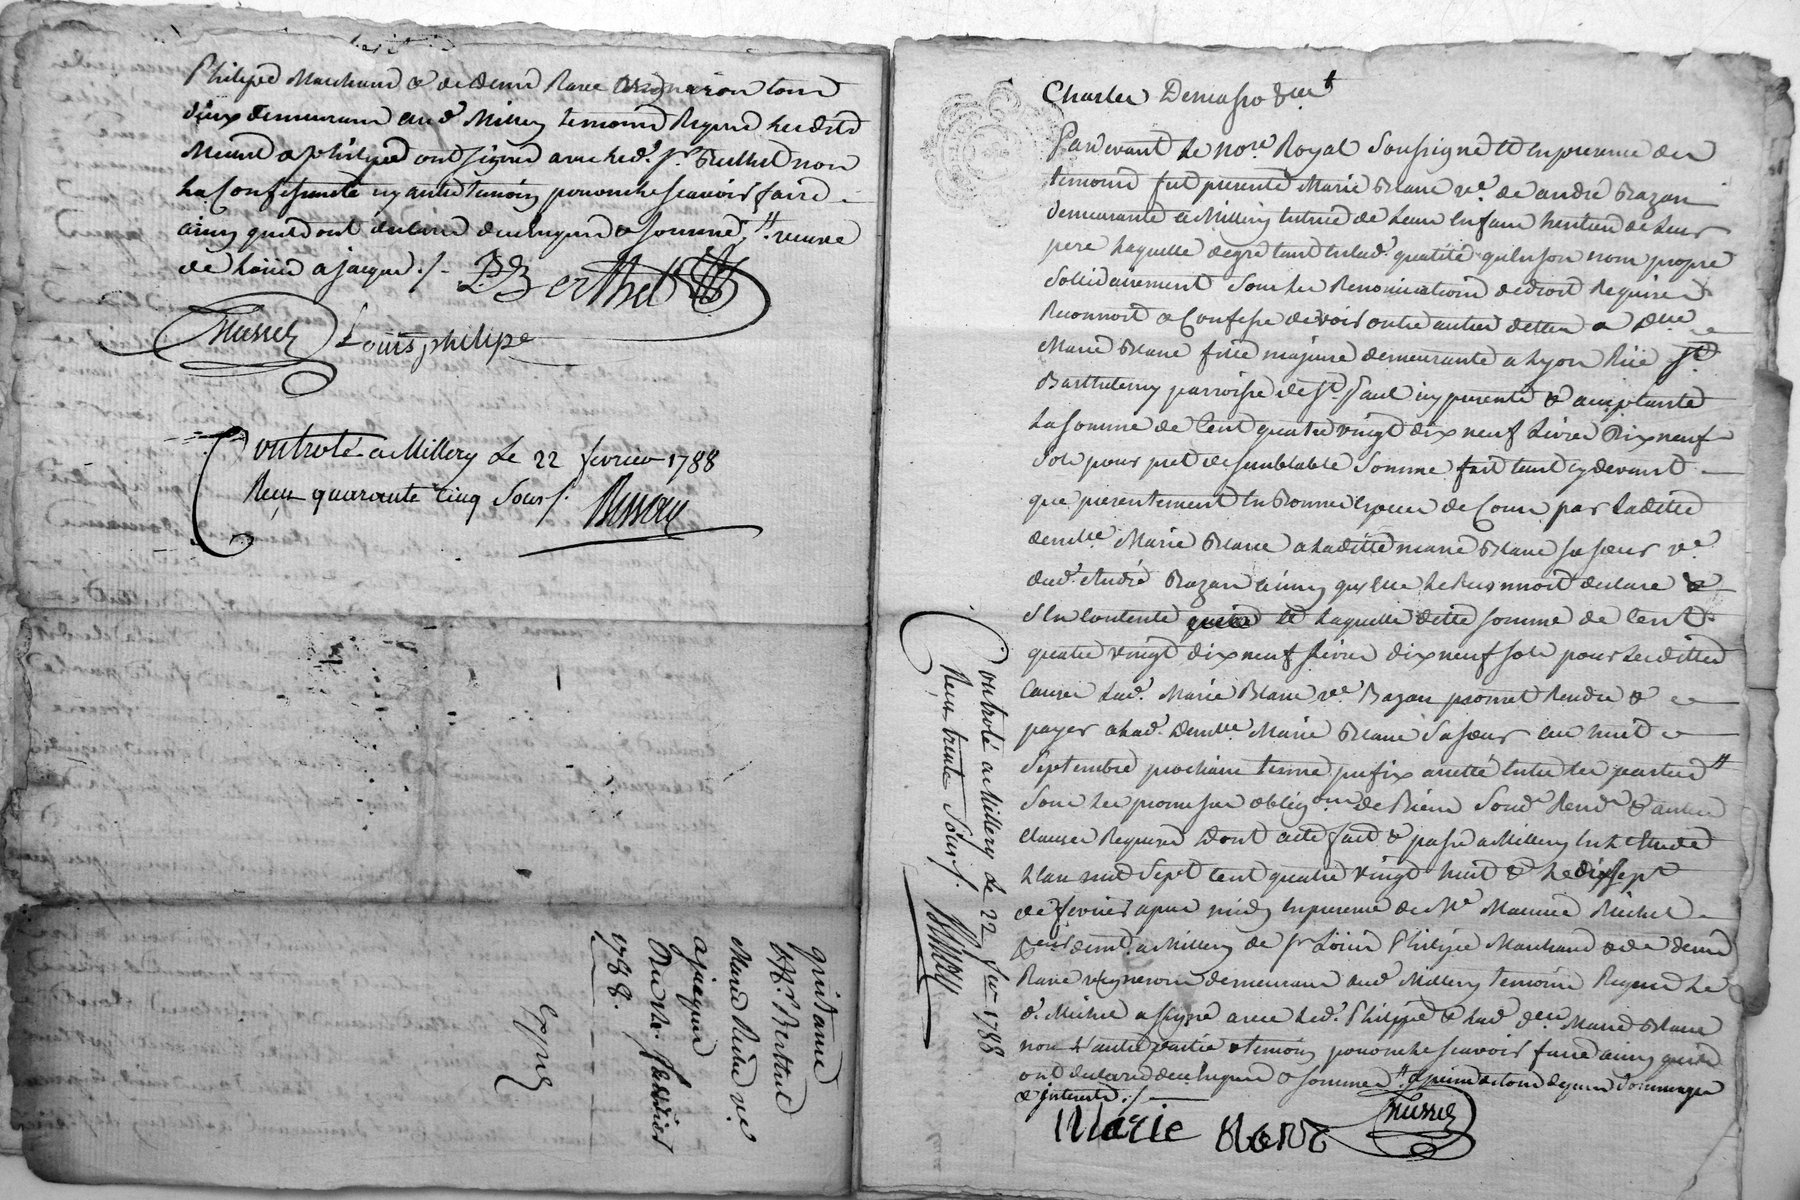 Philipe Marchand & de Denis Rave vigneron tous
deux demeurant aud. Millery temoins Requis lesdits
Michel & philipe ont signés avec led. Sr. Berthel non
la Confessante ny autre temoin pour ne le scavoir faire
ainsy quils ont déclaré de ce enquis & sommés. veuve
de a jacques ./.
P. Berthel
Louis philipe
Controlé a Millery Le 22 fevrier 1788
Recu quarante Cinq Sous /.
quittance
Sr. Berthel
Marie ve.
a jacques
Du fevrier
1788.
Expié
Charles
Pardevant Le Nore. Royal Soussigné Et En presence des
temoins fut presente Marie Blanc ve. de andré Bazan
demeurante a Millery tutrice de Leurs Enfans heritiers de Leur
pere Laquelle de gré tant En lad. qualité qu'en son nom propre
Solidairement Sous Les Renonciations de droit Requises
Reconnoit & Confesse devoir outre autres dettes a Dlle.
Marie Blanc fille majeure demeurante a Lyon Rüe St.
Barthelemy parroisse de St. Paul icy presente & acceptante
La Somme de Cent quatre vingt dix neuf Livres Dix neuf
Sols pour pret de semblable Somme fait tant cy devant
que presentement En Bonnes Especes de Cours par Ladite
demlle. Marie Blanc a Ladite marie Blanc sa soeur ve.
dud. André Bazan ainsy quelle Le Reconnoit declare &
s'En Contente Laquelle dette somme de Cent
quatre vingt dix neuf Livres dix neuf sols pour Lesdittes
Causes Lad. Marie Blanc ve. Bazan promet Rendre &
payer a Lad. Demlle. Marie Blanc Sa soeur au huit
Septembre prochain terme prefix arretté Entre Les parties
Sous Les promesses obligons. de Biens Soud. Rend. & autres
Clauses Requises Dont acte fait & passé a Millery En L'Etude
L'an mil Sept Cent quatre vingt huit & Le dix Sept
de fevrier apres midy En presence de Me. Maurice Michel
demt. a Millery de Sr. Loüis Philipe Marchand & de Denis
Rave vigneron demeurans aud. Millery temoins Requis Le
d. Michel a signé avec Led. Philippe & Lad. Dlle. Marie Blanc
non L'autre partie & temoin pour ne le scavoir faire ainsy quils
ont déclaré de ce Enquis & sommés. a peine de tous depens dommages
& interets ./.
Marie Blanc
Controlé a Millery Le 22 fev. 1788
Recu trente Sous /.